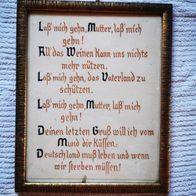 Laß' mich gehn, Mutter, laß' mich
gehn!
All' das Weinen kann uns nichts
mehr nützen.
Laß' mich gehn, das Vaterland zu
schützen.
Laß' mich gehn, Mutter, laß' mich
gehn!
Deinen letzten Gruß will ich vom
Mund dir küssen:
Deutschland muß leben und wenn
wir sterben müssen!